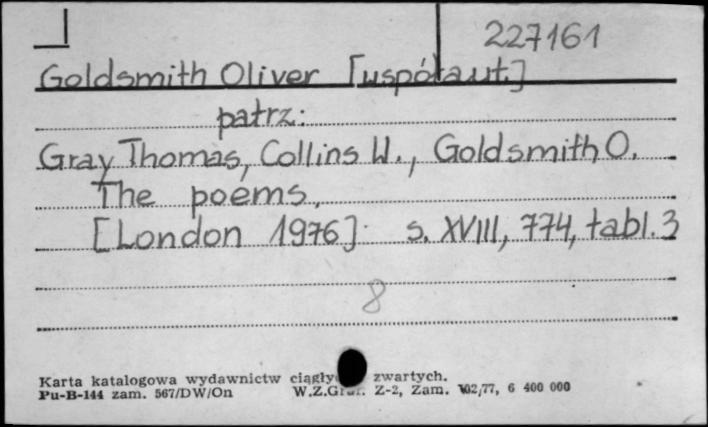 227161
Goldsmith Oliver [współaut.]
patrz:
Gray Thomas, Collins W., Goldsmith O.
The poems.
[London 1976] s. XVIII, 774, tabl. 3
8
Karta katalogowa wydawnictw zwartych.
Pu-B-144 zam. 567/DW/On W.Z.Graf. Z-2, Zam. 102/77, 6 400 000